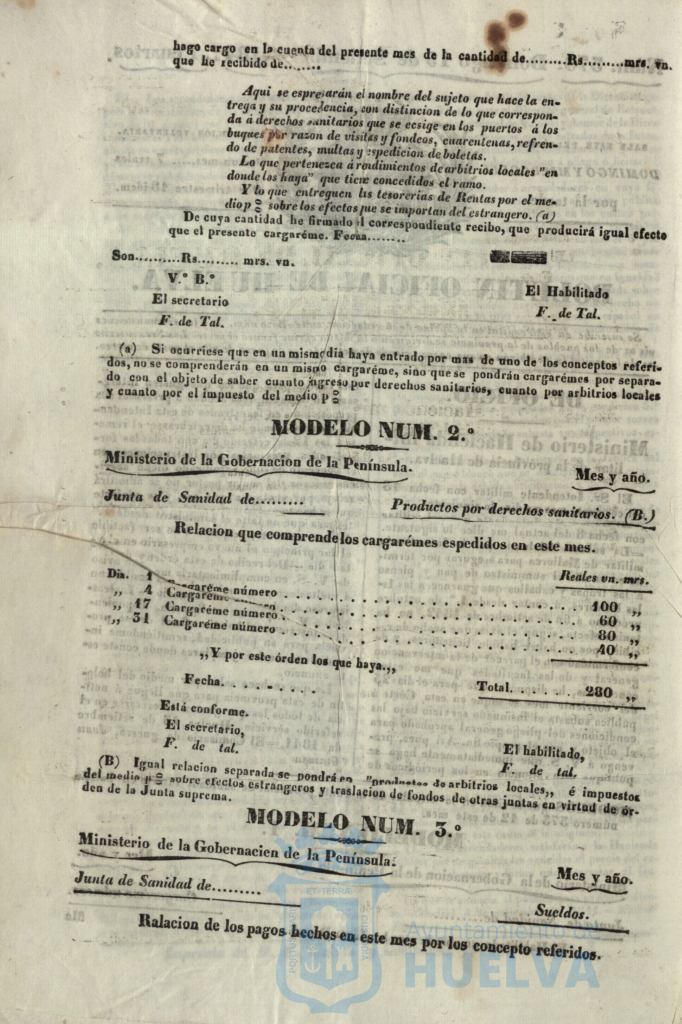 hago cargo en la cuenta del presente mes de la cantidad de.........Rs........mrs. vn.
que he recibido de.......
Aqui se espresarán el nombre del sujeto que hace la en-
trega y su procedencia, con distincion de lo que correspon-
da á derechos sanitarios que se ecsige en los puertos á los
buques por razon de visitas y fondeos, cuarentenas, refren-
do de patentes, multas y espedicion de boletas.
Lo que pertenezca á rendimientos de arbitrios locales "en
donde los haya" que tiene concedidos el ramo.
Y lo que entreguen las tesorerias de Rentas por el me-
dio p% sobre los efectos que se importan del estrangero. (a)
De cuya cantidad he firmado el correspondiente recibo, que producirá igual efecto
que el presente cargaréme. Fecha........
Son..........Rs......... mrs. vn.
V.º B.º
El secretario
F. de Tal.
El Habilitado
F. de Tal.
(a) Si ocurriese que en un mismo dia haya entrado por mas de uno de los conceptos referi-
dos, no se comprenderán en un mismo cargaréme, sino que se pondrán cargarémes por separa-
do con el objeto de saber cuanto ingreso por derechos sanitarios, cuanto por arbitrios locales
y cuanto por el impuesto del medio p%
MODELO NUM. 2.º
Ministerio de la Gobernacion de la Península.
Mes y año.
Junta de Sanidad de.........
Productos por derechos sanitarios. (B.)
Relacion que comprende los cargarémes espedidos en este mes.
Reales vn. mrs.
Dia. 1 Cargaréme número . . . . . . . . . . . . . . 100 „
„ 4 Cargaréme . . . . . . . . . . . . . . 60 „
„ 17 Cargaréme número . . . . . . . . . . . . . . 80 „
„ 31 Cargaréme número . . . . . . . . . . . . . . 40 „
„Y por este órden los que haya.„
Fecha. . . . . . . . Total. . . . . . 280 „
Está conforme.
El secretario,
F. de tal.
El habilitado,
F. de tal.
(B) Igual relacion separada se pondrá en "productos de arbitrios locales„ é impuestos
del medio p% sobre efectos estrangeros y traslacion de fondos de otras juntas en virtud de ór-
den de la Junta suprema.
MODELO NUM. 3.º
Ministerio de la Gobernacien de la Península.
Mes y año.
Junta de Sanidad de.........
Sueldos.
Ralacion de los pagos hechos en este mes por los concepto referidos.
Ayuntamiento de
HUELVA